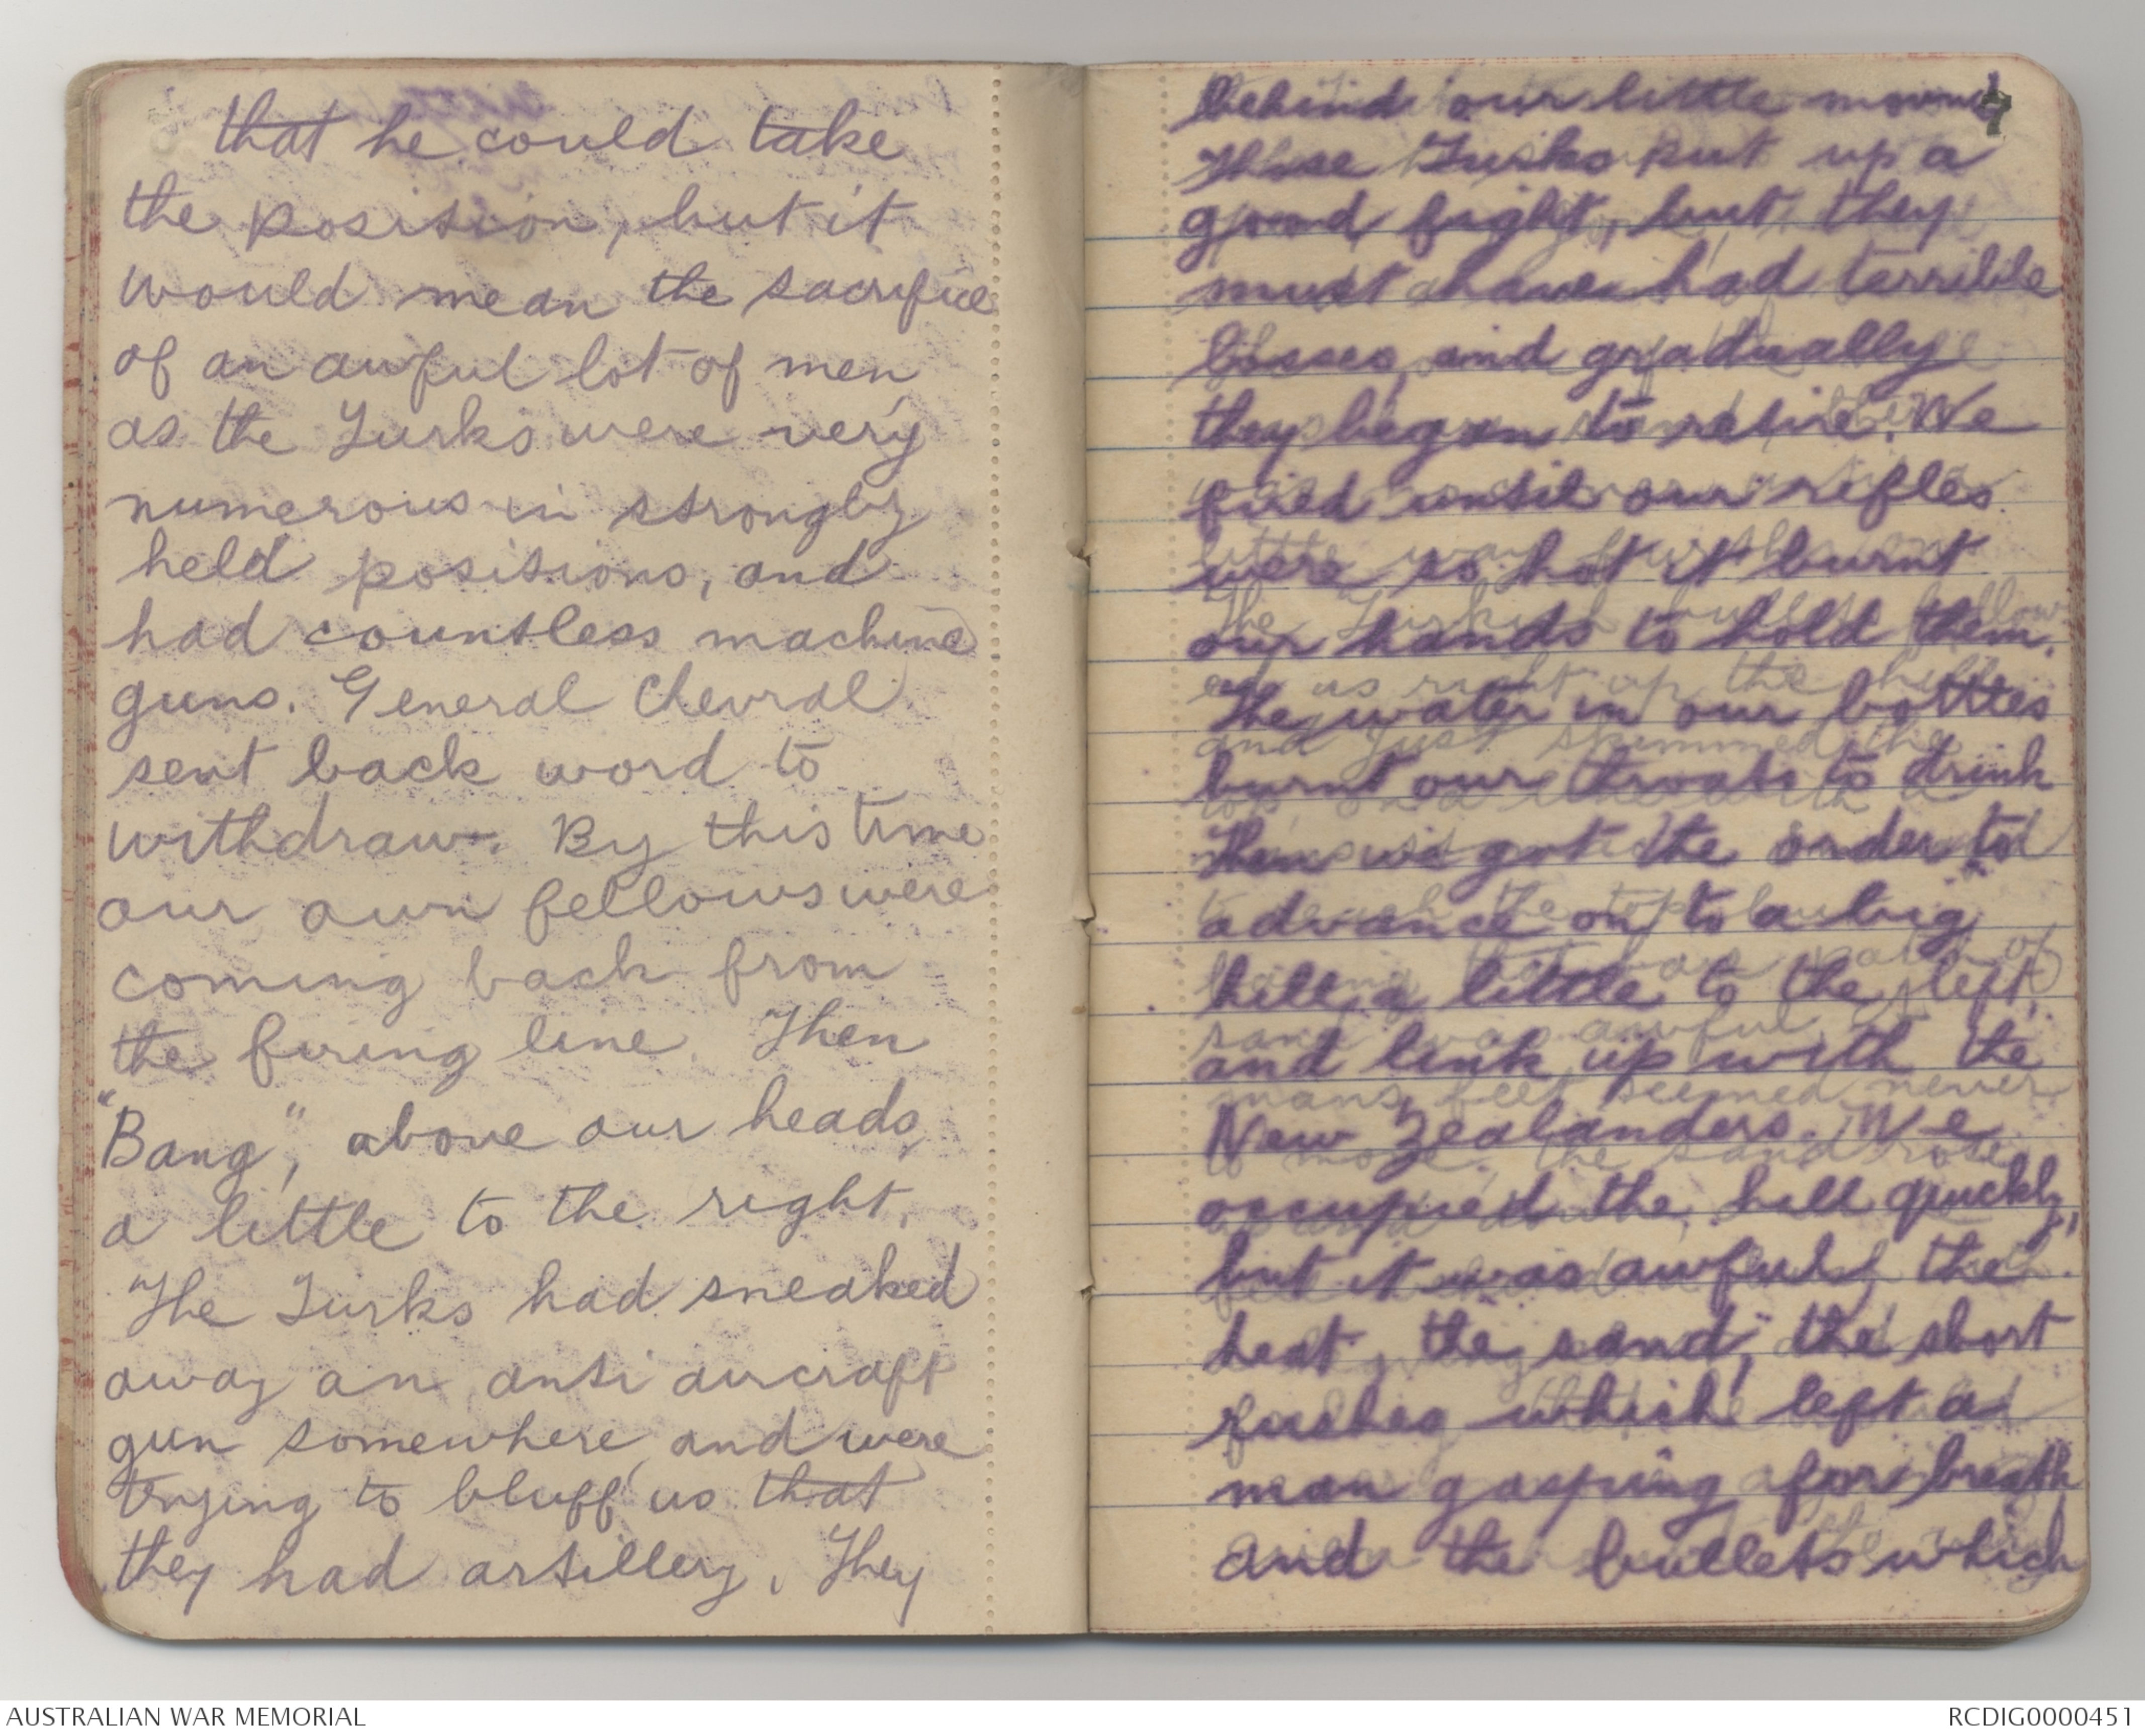 that he could take
the position, but it
would mean the sacrifice
of an awful lot of men
as the Turks were very
numerous in strongly
held positions, and
had countless machine
guns. General Chevral
sent back word to
withdraw. By this time
our own fellows were
coming back from
the firing line. Then
"Bang", above our heads
a little to the right.
The Turks had sneaked
away an anti aircraft
gun somewhere and were
trying to bluff us that
they had artillery. They
7
behind our little mound
Those Turks put up a
good fight, but they
must have had terrible
losses, and gradually
they began to retire. We
fired until our rifles
were so hot it burnt
our hands to hold them.
The water in our bottles
burnt our throats to drink
Then we got the order to
advance on to a big
hill a little to the left,
and link up with the
New Zealanders. We
occupied the hill quickly,
but it was awful, the
heat, the sand, the short
rushes which left a
man gasping for breath
and the bullets which
AUSTRALIAN WAR MEMORIAL
RCDIG0000451